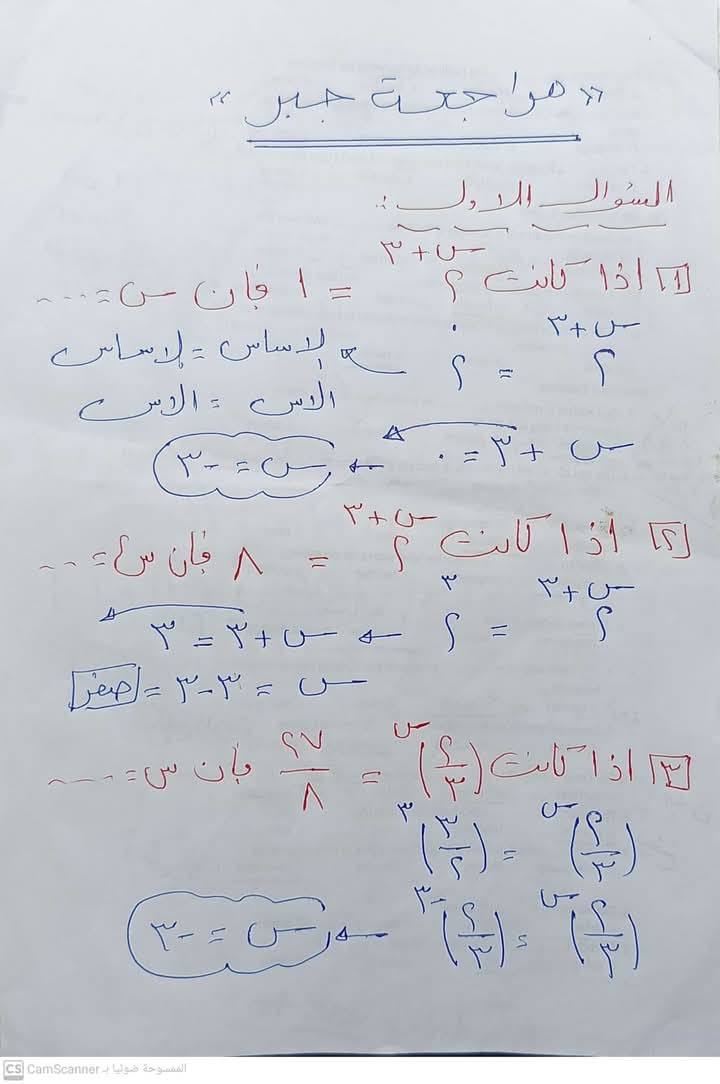 « مراجعة جبر »
السؤال الاول :
[١] اذا كانت ٢^(س+٣) = ١ فإن س = ....
٢^(س+٣) = ٢^٠ ← الاساس = الاساس
الاس = الاس
س + ٣ = ٠ ← س = -٣
[٢] اذا كانت ٢^(س+٣) = ٨ فإن س = ...
٢^(س+٣) = ٢^٣ ← س + ٣ = ٣
س = ٣ - ٣ = صفر
[٣] اذا كانت (٢/٣)^س = ٢٧/٨ فإن س = .....
(٢/٣)^س = (٣/٢)^٣
(٢/٣)^س = (٢/٣)^-٣ ← س = -٣
CS CamScanner الممسوحة ضوئيا بـ